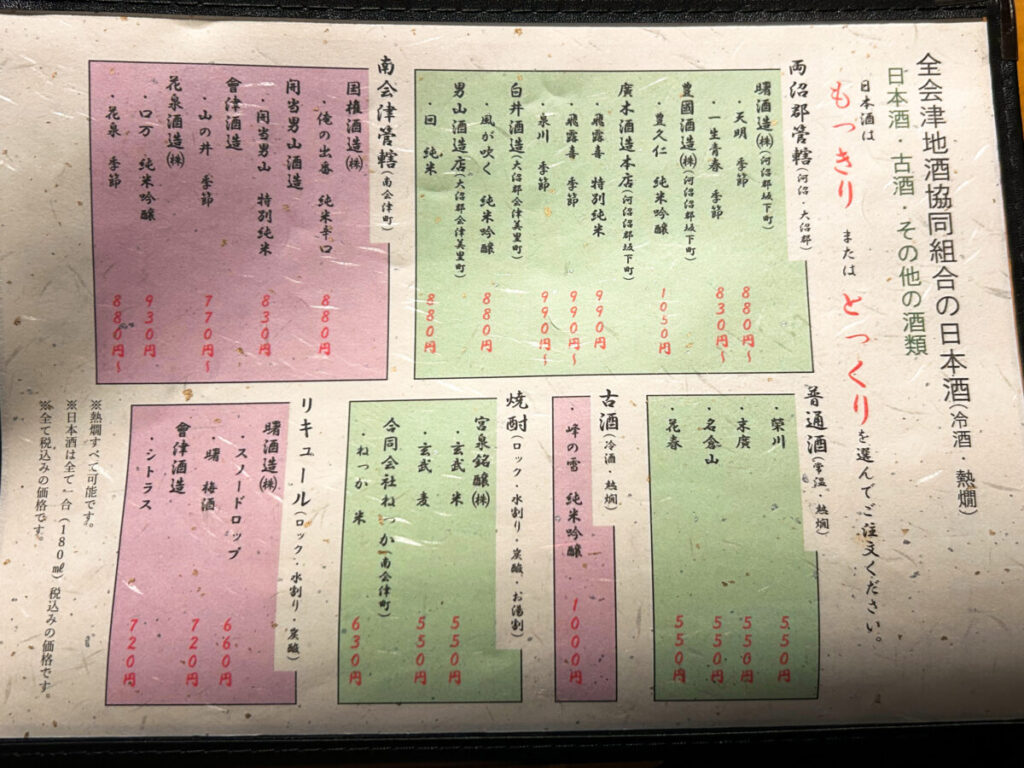 全会津地酒協同組合の日本酒(冷酒・熱燗)
日本酒・古酒・その他の酒類
日本酒は
もっきり または とっくりを選んでご注文ください。
両沼郡管轄(河沼・大沼郡)
曙酒造㈱(河沼郡坂下町)
・天明 季節 880円~
・一生青春 季節 830円~
豊國酒造㈱(河沼郡坂下町)
・豊久仁 純米吟醸 1050円
廣木酒造本店(河沼郡坂下町)
・飛露喜 特別純米 990円
・飛露喜 季節 990円~
・泉川 季節 990円~
白井酒造(大沼郡会津美里町)
・風が吹く 純米吟醸 880円
男山酒造店(大沼郡会津美里町)
・回 純米 880円
南会津管轄(南会津町)
国権酒造㈱
・俺の出番 純米辛口 880円
開当男山酒造
・開当男山 特別純米 830円
會津酒造
・山の井 季節 770円~
花泉酒造㈱
・口万 純米吟醸 930円
・花泉 季節 880円~
普通酒(常温、熱燗)
・榮川 550円
・末廣 550円
・名倉山 550円
・花春 550円
古酒(冷酒、熱燗)
・峰の雪 純米吟醸 1000円
焼酎(ロック・水割り・炭酸・お湯割)
宮泉銘醸㈱
・玄武 米 550円
・玄武 麦 550円
合同会社ねっか(南会津町)
・ねっか 米 630円
リキュール(ロック・水割り・炭酸)
曙酒造㈱
・スノードロップ 660円
・曙 梅酒 720円
會津酒造
・シトラス 720円
※熱燗すべて可能です。
※日本酒は全て一合(180㎖)税込みの価格です。
※全て税込みの価格です。